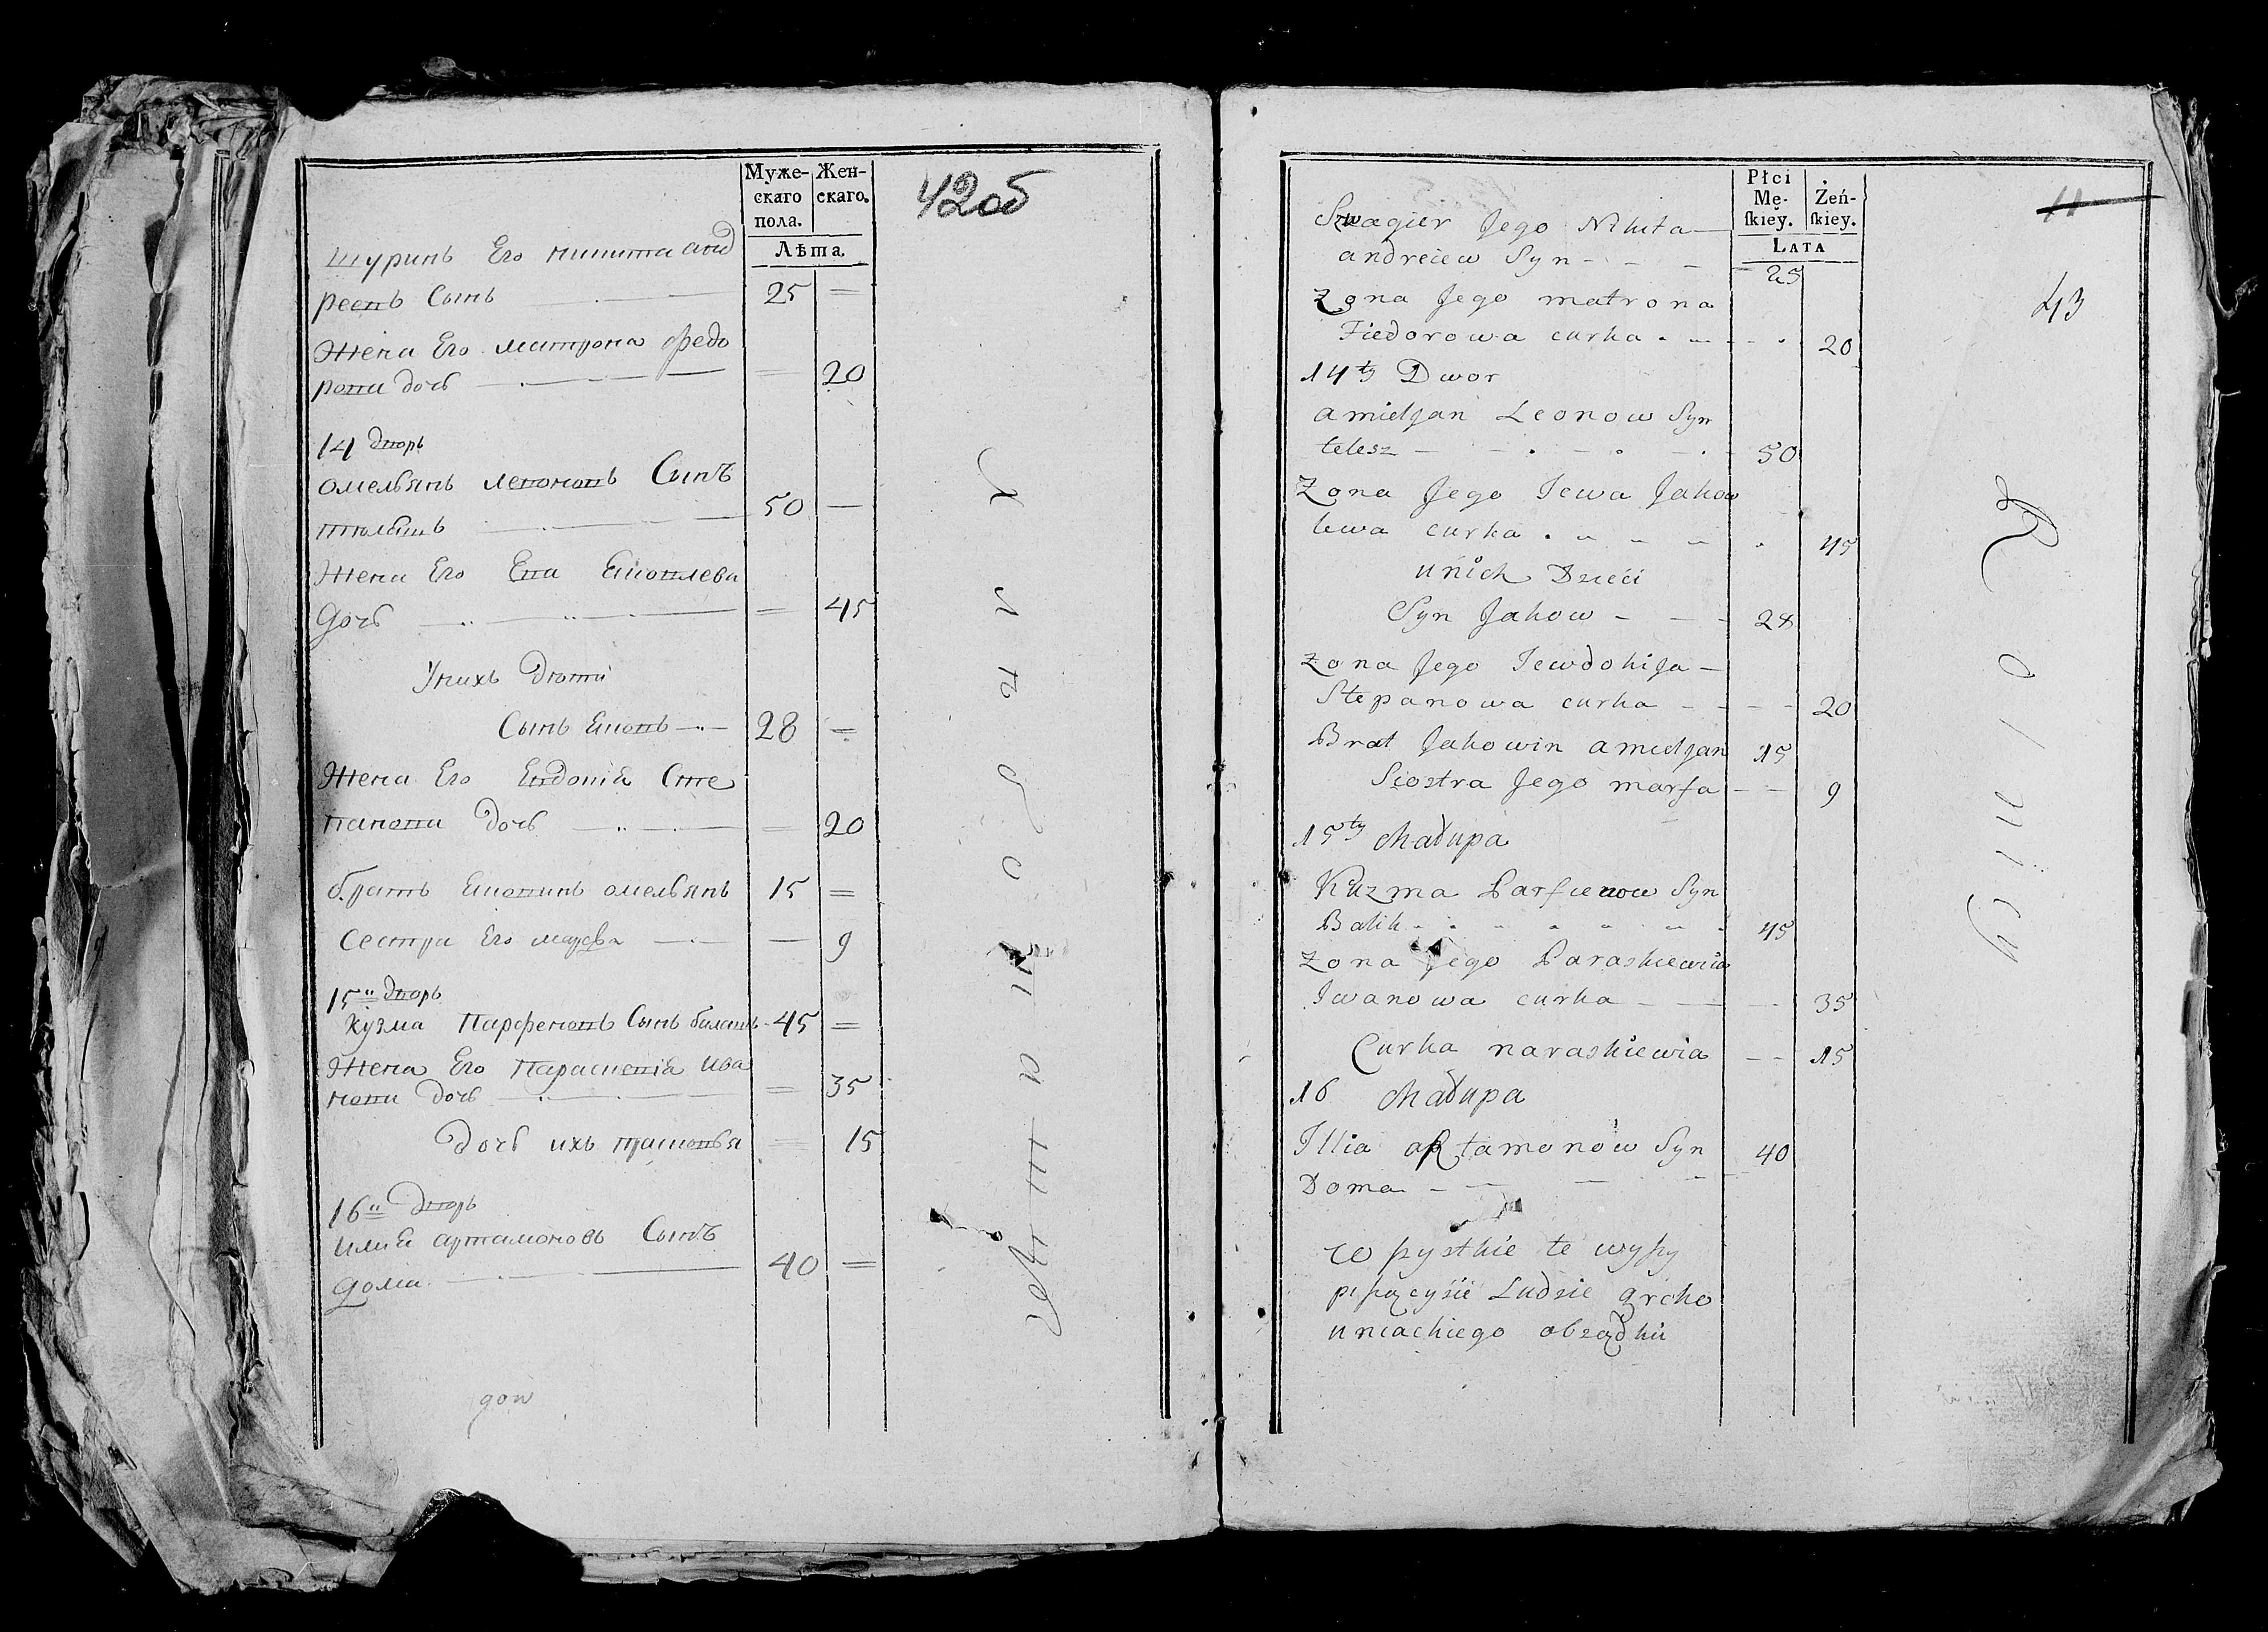 Муже-
скаго
пола.
Жен-
скаго.
Лѣта.
42об
шуринъ Его никита анд
реевъ Сынъ 25 =
Жена Его матрона федо
рова дочь = 20
14 дворъ
омельянъ левоновъ Сынъ
50 —
Жена Его Ева Яковлева
дочь = 45
Унихъ дѣти
Сынъ Яковъ 28 =
Жена Его Евдокія Сте
панова дочь — 20
братъ Яковинъ омельянъ 15 =
сестра Его марфа — 9
15й дворъ
кузма Парфеновъ Сынъ 45 =
Жена Его Параскевія ива
нова дочь = 35
Дочь ихъ = 15
16й дворъ
илия артамоновъ Сынъ
дома 40 =
gow
Płci
Mę-
ſkiey.
Żeń-
ſkiey.
LATA
11
43
Szwagier Jego Nikita
andreiew Syn 25
Zona Jego matrona
Fiedorowa curka 20
14ty Dwor
amieljan Leonow Syn
telesz 50
Zona Jego Jewa Jakow
lewa curka 45
unich Dzieci
Syn Jakow 28
Zona Jego Jewdokija
Stepanowa curka 20
Brat Jakowin amieljan 15
Siostra Jego marfa 9
15ty Chałupa
Kuzma Parfienow Syn
Balik 45
Zona Jego Paraskiewia
Iwanowa curka 35
Curka naraskiewia 15
16 Chałupa
Illia artamonow Syn 40
Doma
Wszystkie te wyszy
piszącysie Ludzie grcko
uniackiego obrządku